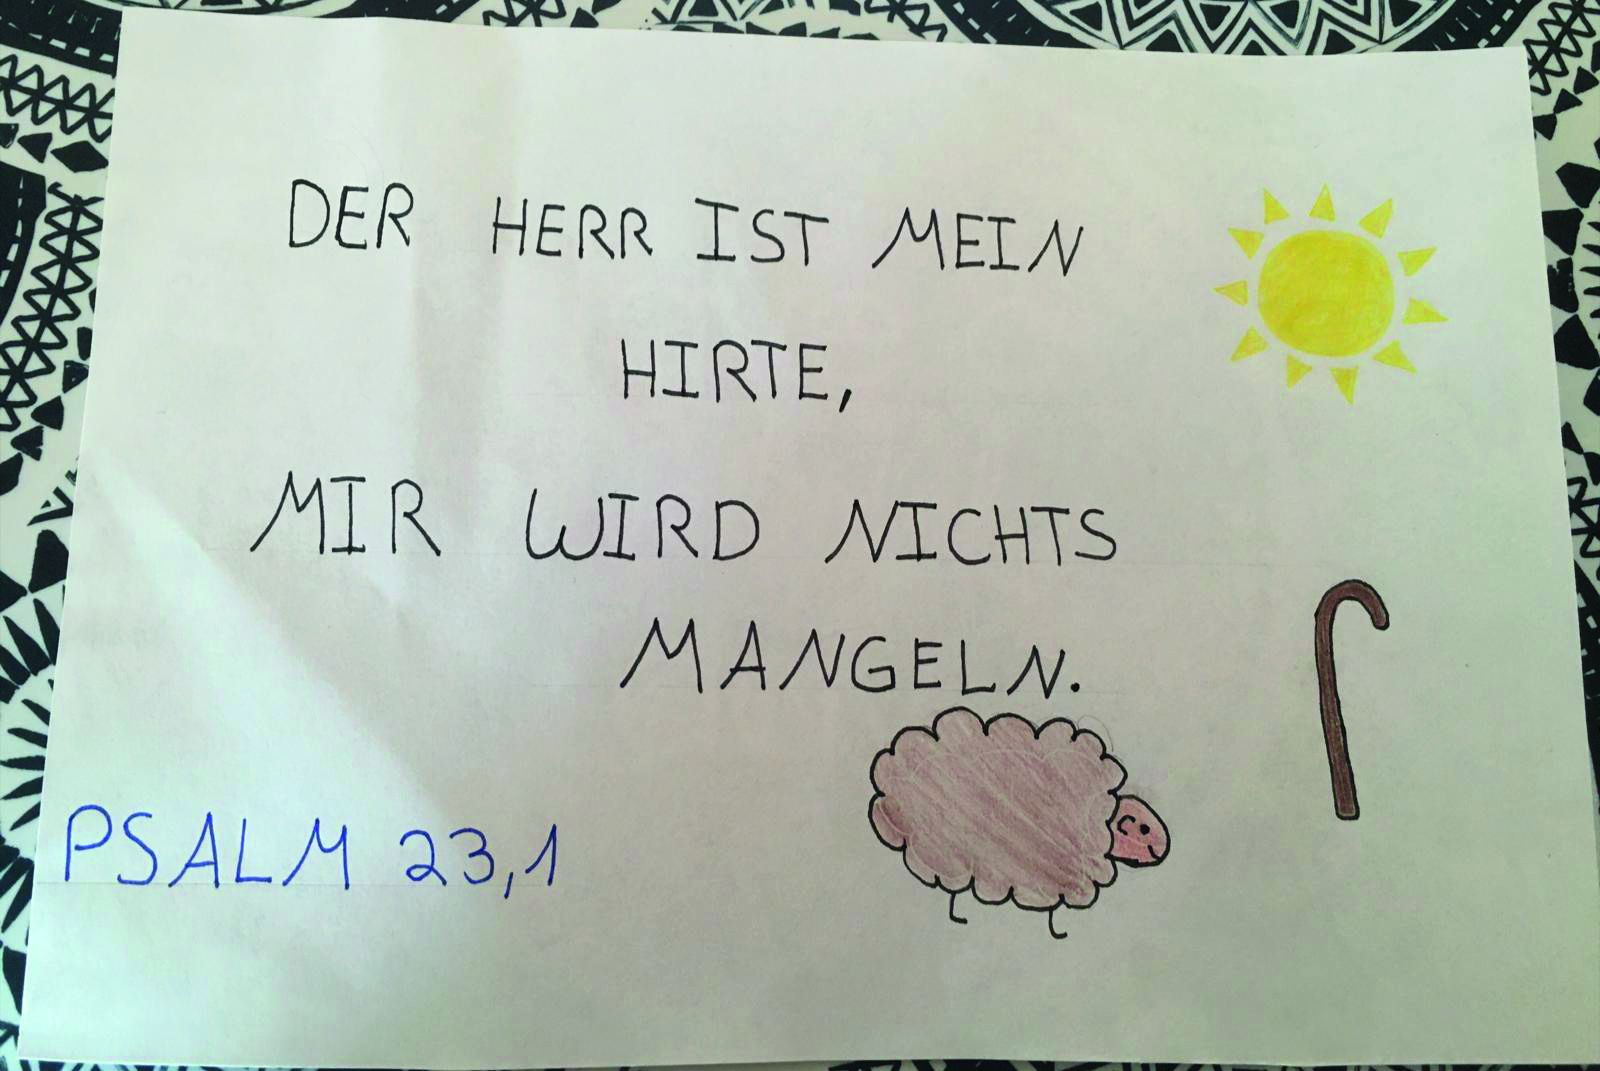 DER HERR IST MEIN
HIRTE,
MIR WIRD NICHTS
MANGELN.
PSALM 23,1